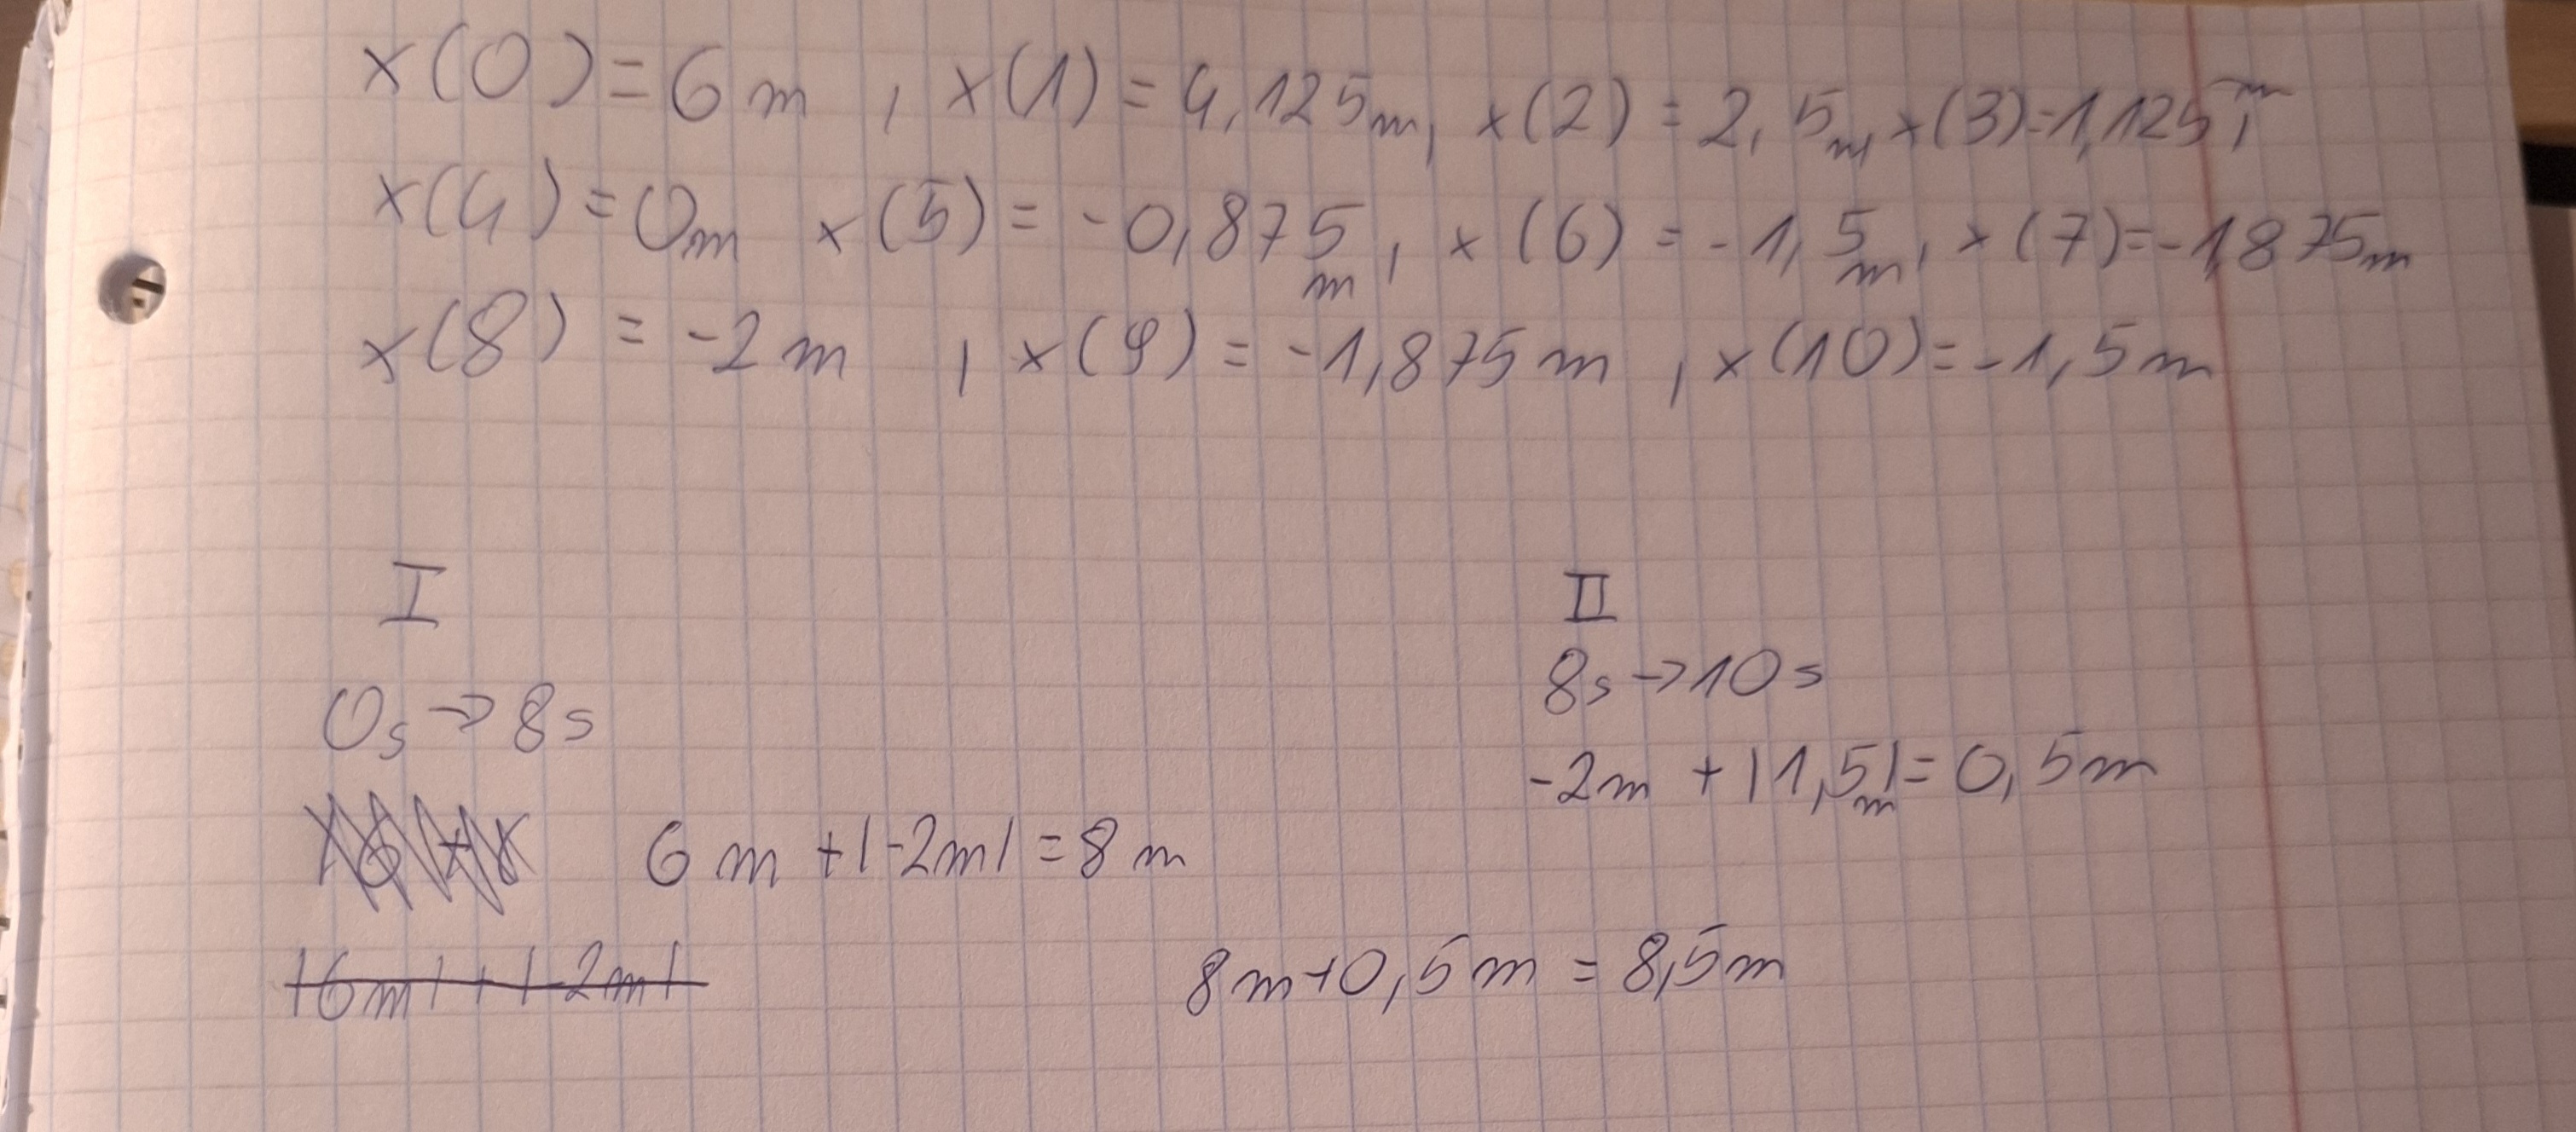 x(0)=6m , x(1)=4,125m, x(2)=2,5m, x(3)=1,125m,
x(4)=0m x(5)=-0,875m, x(6)=-1,5m, x(7)=-1,875m
x(8)=-2m , x(9)=-1,875m , x(10)=-1,5m
I
II
0s→8s
8s→10s
-2m +|1,5m|=0,5m
6m+|-2m|=8m
|6m|+|-2m|
8m+0,5m=8,5m